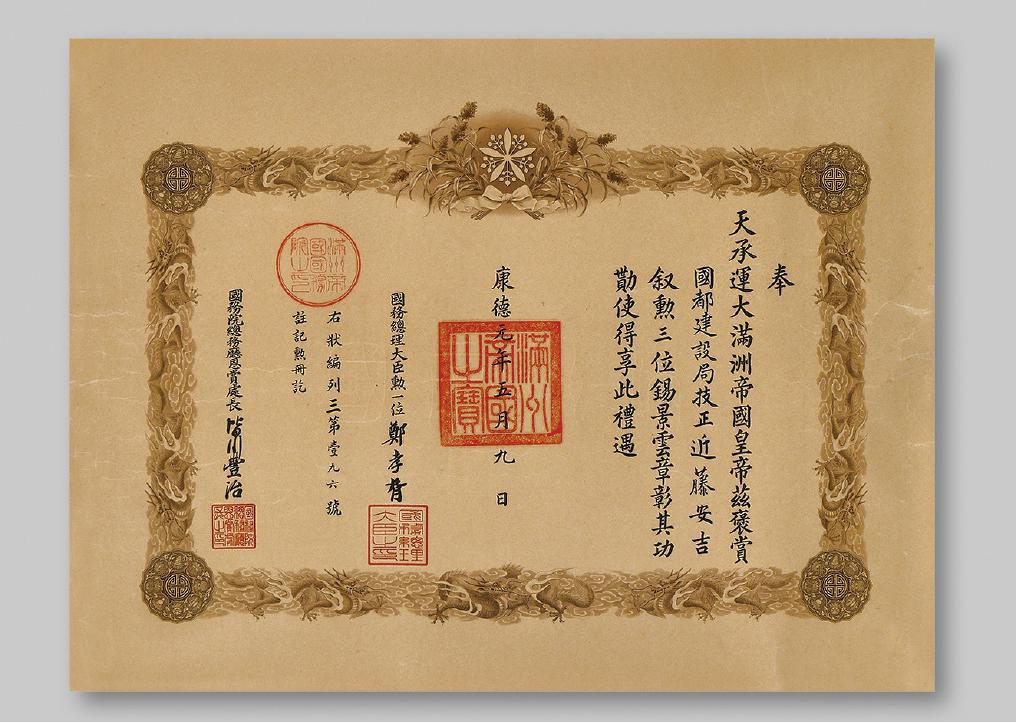 奉
天承運大滿洲帝國皇帝茲褒賞
國都建設局技正近藤安吉
叙勲三位錫景雲章彰其功
勛使得享此禮遇
康德元年五月九日
滿洲帝國之寶
國務總理大臣勲一位鄭孝胥
右狀編列三第壹九六號
註記勲冊訖
國務院總務廳恩賞處長 皆川豐治